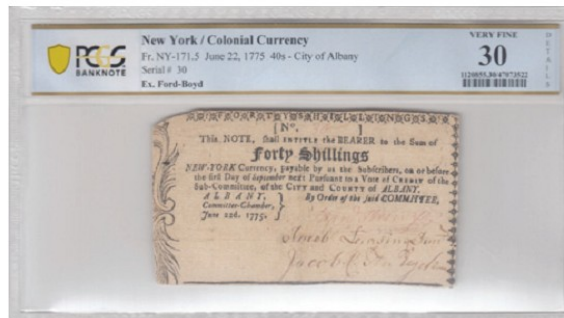 PCGS
BANKNOTE
New York / Colonial Currency
Fr. NY-171.5 June 22, 1775 40s - City of Albany
Serial # 30
Ex. Ford-Boyd
VERY FINE
30
DETAILS
[ No. ]
This NOTE, shall ENTITLE the BEARER to the Sum of
Forty Shillings
NEW-YORK Currency, payable by us the Subscribers, on or before
the first Day of September next: Pursuant to a Vote of CREDIT of the
Sub-Committee, of the CITY and COUNTY of ALBANY.
ALBANY, By Order of the said COMMITTEE,
Committee-Chamber,
June 22d. 1775.
Jacob
Jacob C. Ten Eyck